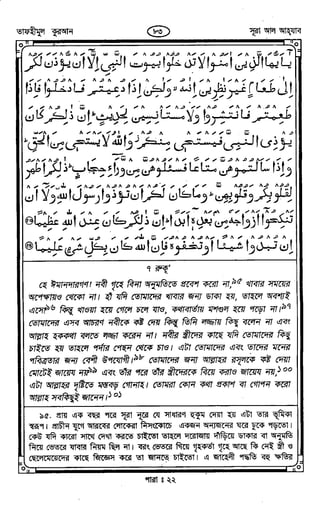 তাফহীমুল কুরআন
৮৩
সূরা আল আহযাব
يٰٓاَيُّهَا الَّذِيْنَ اٰمَنُوْا لَا تَدْخُلُوْا بُيُوْتَ النَّبِيِّ اِلَّآ اَنْ يُّؤْذَنَ لَكُمْ
اِلٰى طَعَامٍ غَيْرَ نٰظِرِيْنَ اِنٰىهُ وَلٰكِنْ اِذَا دُعِيْتُمْ فَادْخُلُوْا فَاِذَا
طَعِمْتُمْ فَانْتَشِرُوْا وَلَا مُسْتَاْنِسِيْنَ لِحَدِيْثٍ اِنَّ ذٰلِكُمْ كَانَ
يُؤْذِى النَّبِيَّ فَيَسْتَحْيٖ مِنْكُمْ وَاللّٰهُ لَا يَسْتَحْيٖ مِنَ الْحَقِّ
وَاِذَا سَاَلْتُمُوْهُنَّ مَتَاعًا فَسْـَٔلُوْهُنَّ مِنْ وَّرَآءِ حِجَابٍ ذٰلِكُمْ اَطْهَرُ
لِقُلُوْبِكُمْ وَقُلُوْبِهِنَّ وَمَا كَانَ لَكُمْ اَنْ تُؤْذُوْا رَسُوْلَ اللّٰهِ وَلَآ اَنْ
تَنْكِحُوْٓا اَزْوَاجَهٗ مِنْۢ بَعْدِهٖٓ اَبَدًا اِنَّ ذٰلِكُمْ كَانَ عِنْدَ اللّٰهِ عَظِيْمًا
اِنْ تُبْدُوْا شَيْـًٔا اَوْ تُخْفُوْهُ فَاِنَّ اللّٰهَ كَانَ بِكُلِّ شَيْءٍ عَلِيْمًا
৭ রুকূ'
হে ঈমানদারগণ! নবী গৃহে বিনা অনুমতিতে প্রবেশ করো না,৯৫ খাবার সময়ের
অপেক্ষায়ও থেকো না। হাঁ যদি তোমাদের খাবার জন্য ডাকা হয়, তাহলে অবশ্যই
এসো৯৬ কিন্তু খাওয়া হয়ে গেলে চলে যাও, কথাবার্তায় মশগুল হয়ে পড়ো না।৯৭
তোমাদের এসব আচরণ নবীকে কষ্ট দেয় কিন্তু তিনি লজ্জায় কিছু বলেন না এবং
আল্লাহ হককথা বলতে লজ্জা করেন না। নবীর স্ত্রীদের কাছে যদি তোমাদের কিছু
চাইতে হয় তাহলে পর্দার পেছন থেকে চাও। এটা তোমাদের এবং তাদের মনের
পবিত্রতার জন্য বেশী উপযোগী।৯৮ তোমাদের জন্য আল্লাহর রসূলকে কষ্ট দেয়া
মোটেই জায়েয নয়৯৯ এবং তাঁর পরে তাঁর স্ত্রীদেরকে বিয়ে করাও জায়েয নয়,১০০
এটা আল্লাহর দৃষ্টিতে মস্তবড় গোনাহ। তোমরা কোন কথা প্রকাশ বা গোপন করো
আল্লাহ সবকিছুই জানেন।১০১
৯৫. প্রায় এক বছর পরে সূরা নূরে যে সাধারণ হুকুম দেয়া হয় এটা তার ভূমিকা
স্বরূপ। প্রাচীন যুগে আরবের লোকেরা নিসংকোচে একজন অন্যজনের ঘরে ঢুকে পড়তো।
কেউ যদি কারো সাথে দেখা করতে চাইতো তাহলে দরোজায় দাঁড়িয়ে ডাকার বা অনুমতি
নিয়ে ভেতরে যাবার নিয়ম ছিল না। বরং ভেতরে গিয়ে গৃহকর্তা গৃহে আছে কি নেই স্ত্রী ও
ছেলেমেয়েদের কাছে জিজ্ঞেস করে তা জানতে চাইতো। এ জাহেলী পদ্ধতি বহু ক্ষতির
পারা ঃ ২২